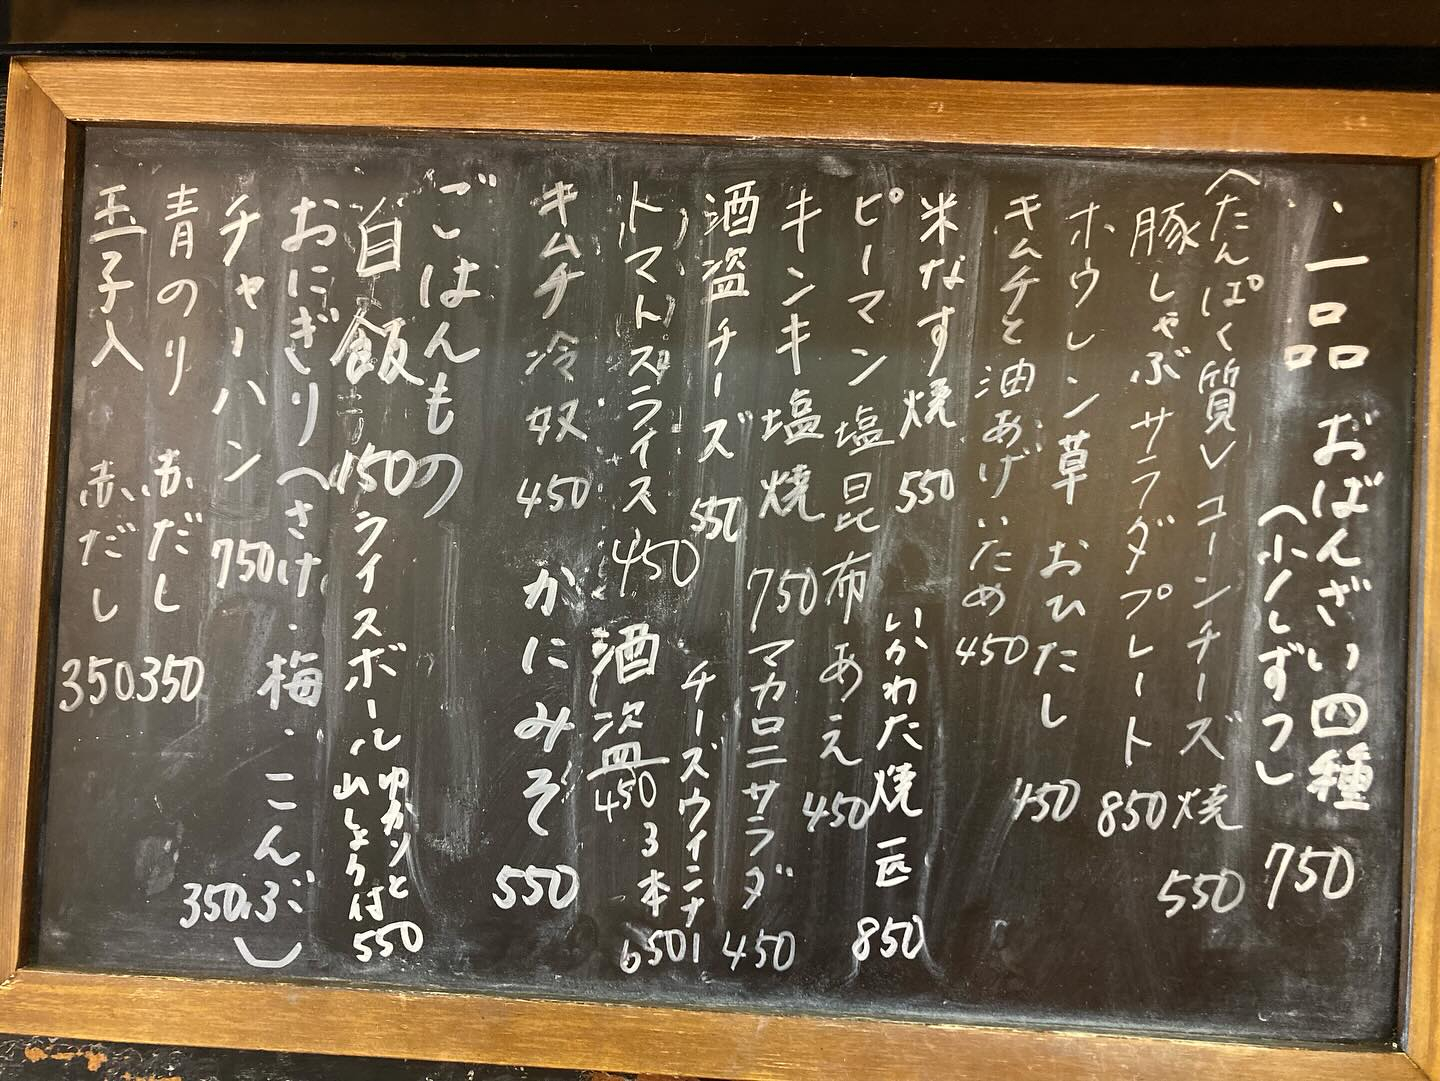 一品 おばんざい四種 750
(少しずつ)
(たんぱく質) コーンチーズ焼 550
豚しゃぶサラダプレート 850
ホウレン草 おひたし 450
キムチと油あげいため 450
米なす焼 550
いかわた焼 一匹 850
ピーマン塩昆布あえ 450
キンキ塩焼 750
マカロニサラダ 450
酒盗チーズ 550
チーズウインナー
3本 650
トマトスライス 450
酒盗 450
キムチ冷奴 450
かにみそ 550
ごはんもの
白飯 150
ライスボール 山しょう付 550
おにぎり(さけ・梅・こんぶ) 350
チャーハン 750
青のり 赤だし 350
玉子入 赤だし 350